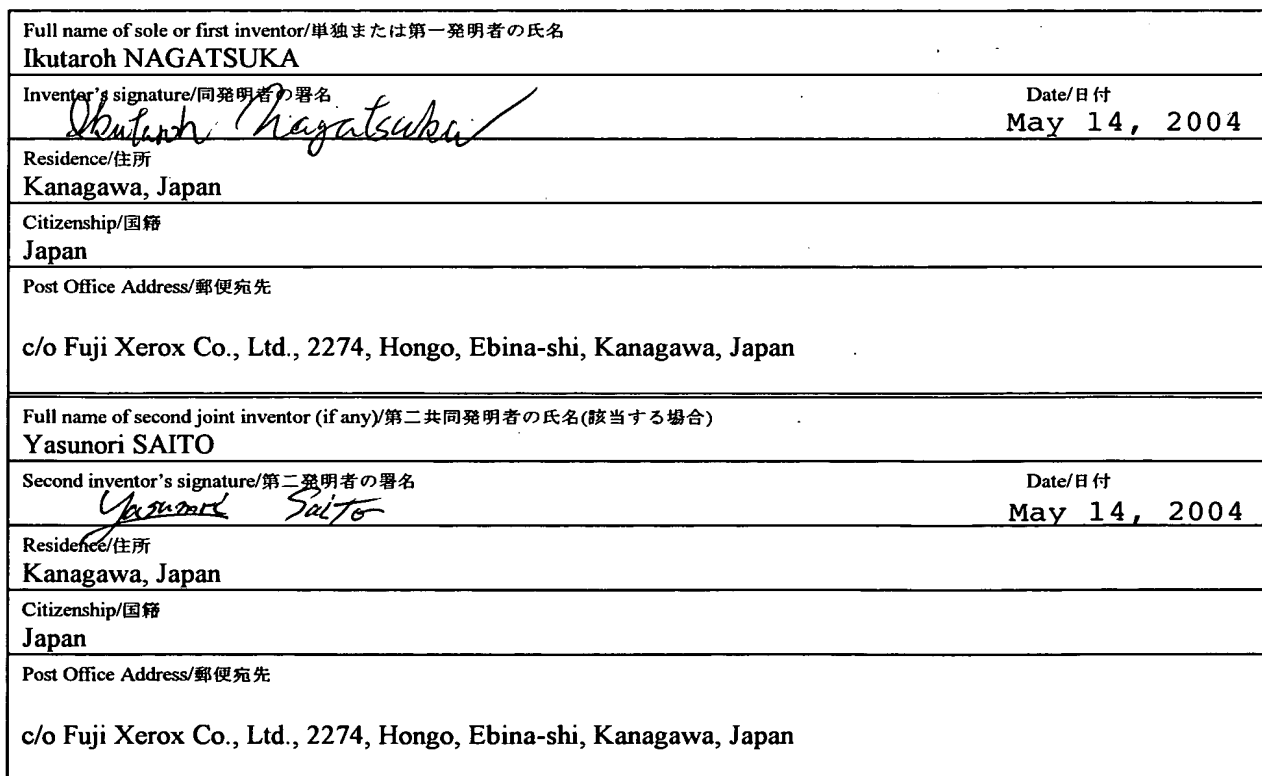 Full name of sole or first inventor/単独または第一発明者の氏名
Ikutaroh NAGATSUKA
Inventor's signature/同発明者の署名 Date/日付
Ikutaroh Nagatsuka May 14, 2004
Residence/住所
Kanagawa, Japan
Citizenship/国籍
Japan
Post Office Address/郵便宛先
c/o Fuji Xerox Co., Ltd., 2274, Hongo, Ebina-shi, Kanagawa, Japan
Full name of second joint inventor (if any)/第二共同発明者の氏名(該当する場合)
Yasunori SAITO
Second inventor's signature/第二発明者の署名 Date/日付
Yasunori Saito May 14, 2004
Residence/住所
Kanagawa, Japan
Citizenship/国籍
Japan
Post Office Address/郵便宛先
c/o Fuji Xerox Co., Ltd., 2274, Hongo, Ebina-shi, Kanagawa, Japan